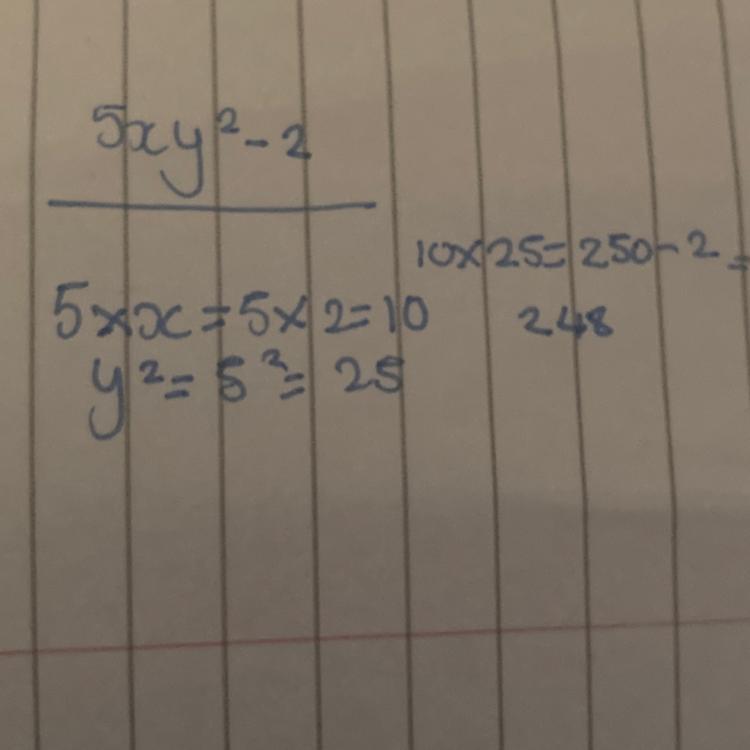 5xy²-2
5×x=5×2=10
y²=5²=25
10×25=250-2=
248